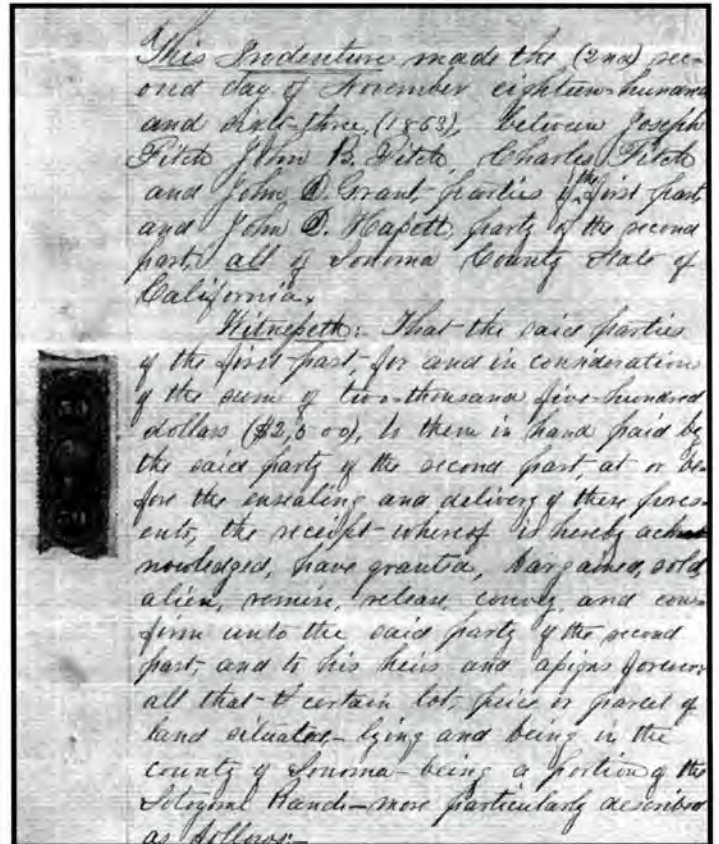 This Indenture made the (2nd) sec-
ond day of November eighteen-hundred
and sixty-three, (1863), between Joseph
Fitch John B. Fitch, Charles Fitch
and John D. Grant, parties of the first part
and John D. Hassett, party of the second
part, all of Sonoma County State of
California.
Witnesseth:- That the said parties
of the first part, for and in consideration
of the sum of two-thousand five-hundred
dollars ($2,500), to them in hand paid by
the said party of the second part, at or be-
fore the ensealing and delivery of these pres-
ents, the receipt whereof is hereby ack
nowledged, have granted, bargained, sold,
alien, remise, release, convey, and con-
firm unto the said party of the second
part, and to his heirs and assigns forever
all that certain lot, peice or parcel of
land situated- lying and being in the
county of Sonoma- being a portion of the
Sotoyome Rancho- more particularly described
as follows:-
50
50